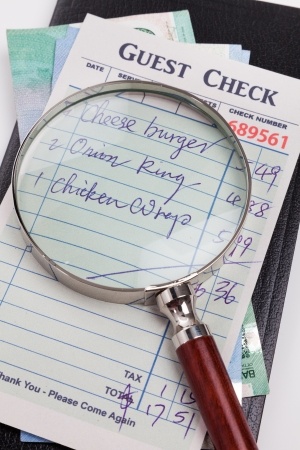 GUEST CHECK
DATE CHECK NUMBER
689561
Cheese burger 49
2 Onion Ring
1 Chicken Wrap
36
TAX 1 15
TOTAL $ 17 51
Thank You - Please Come Again